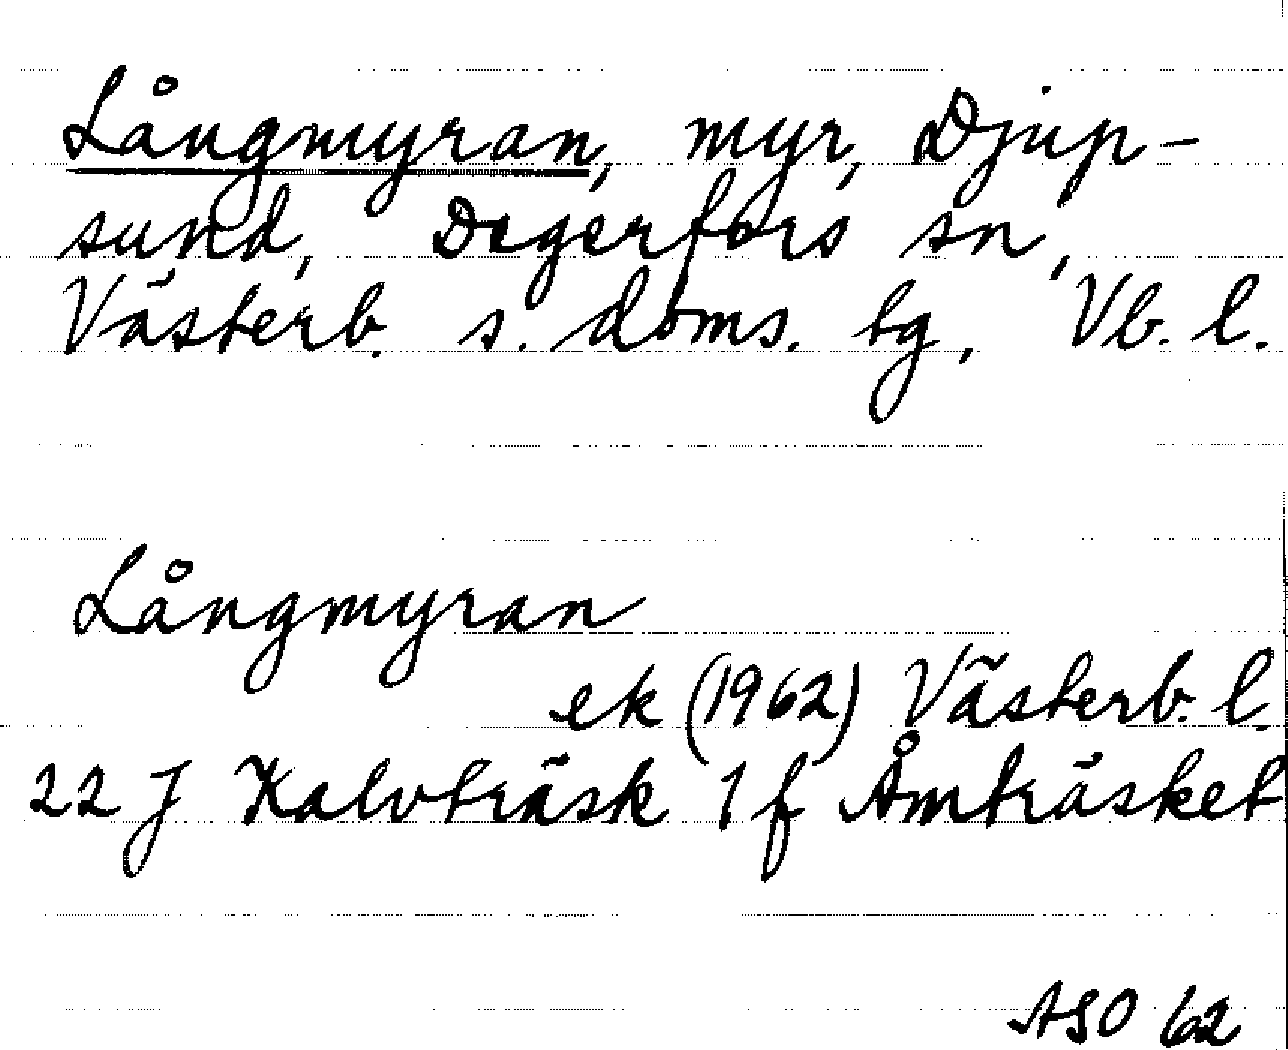 Långmyran, myr, Djup-
sund, Degerfors sn,
Västerb. s. doms. tg, Vb. l.
Långmyran
ek (1962) Västerb. l.
22 J Kalvträsk 1 f Åmträsket
ASO 62